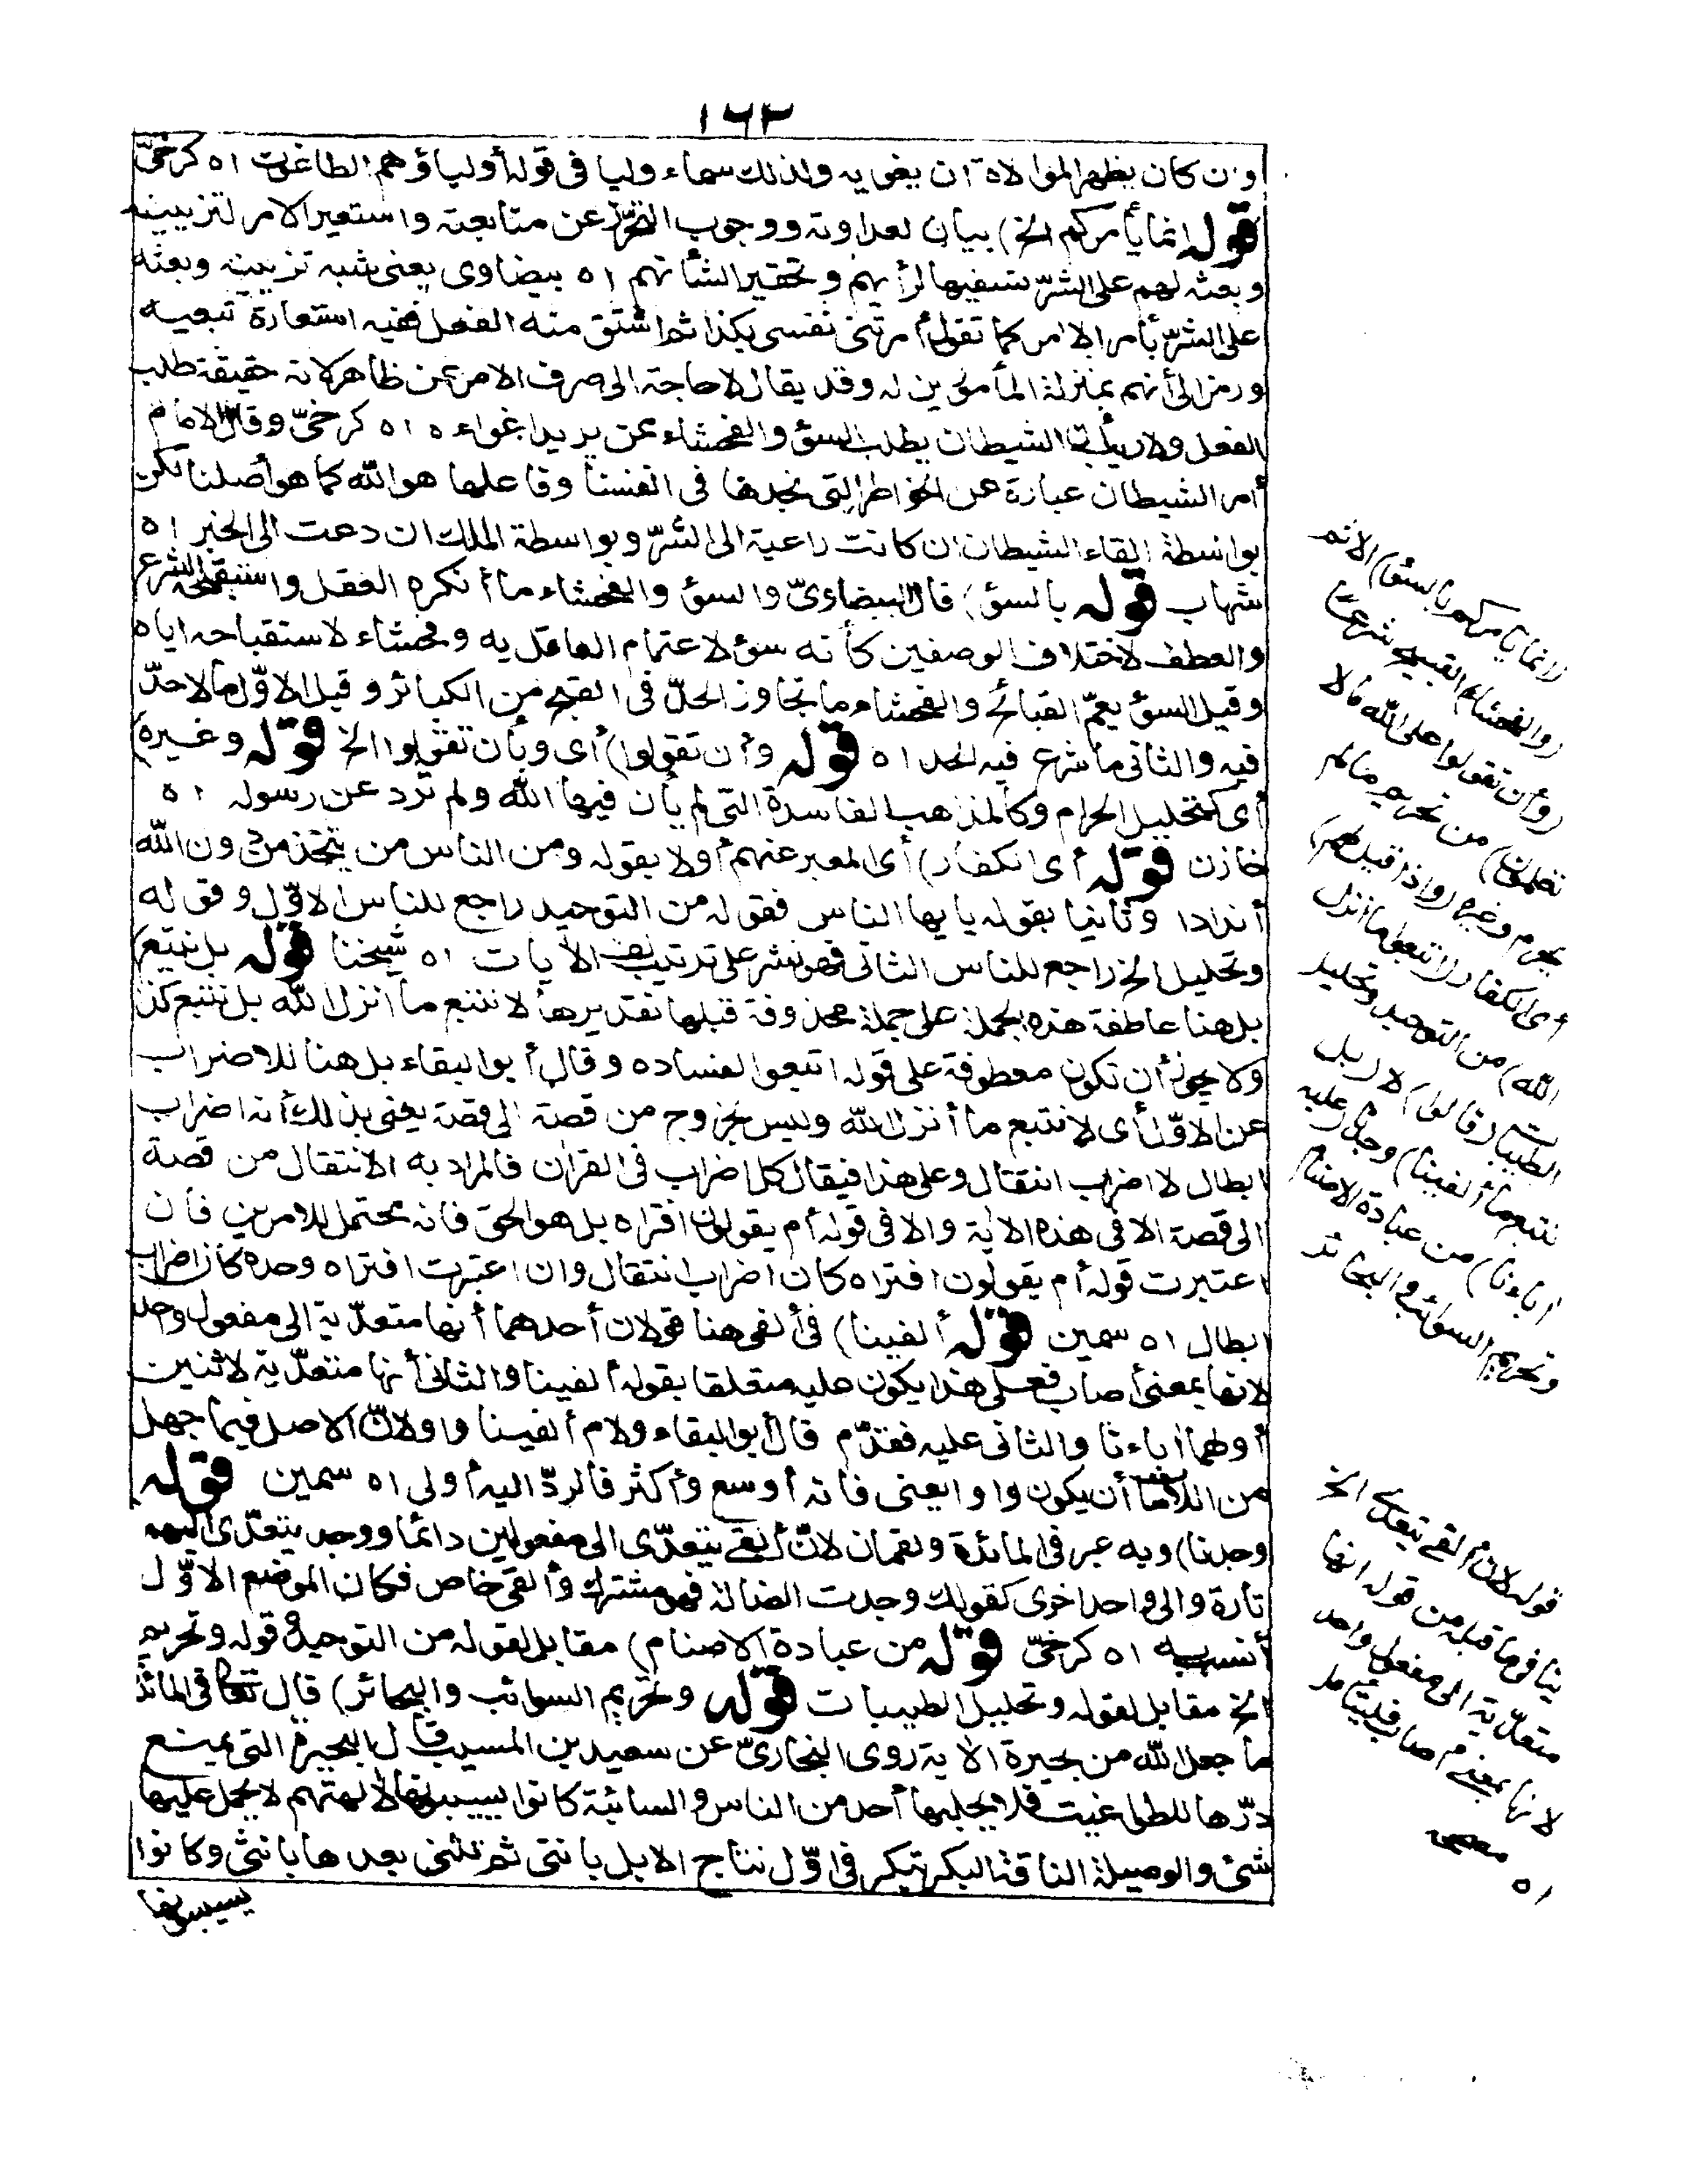 ١٦٢
وان كان يظهر الموالاة لمن يغويه ولذلك سماه وليا في قوله أولياؤهم الطاغوت اه كرخيّ
قوله انما يأمركم الخ) بيان لعداوته ووجوب التحرّز عن متابعته واستعير الامر لتزيينه
وبعثه لهم على الشرّ تسفيها لرأيهم وتحقيرا لشأنهم اه بيضاوى يعنى شبه تزيينه وبعثه
على الشرّ بأمر الآمر كما تقول أمرتنى نفسى بكذا ثم اشتق منه الفعل ففيه استعارة تبعيه
ورمز الى أنهم بمنزلة المأمورين له وقد يقال لا حاجة الى صرف الامر عن ظاهره لانه حقيقة طلب
الفعل ولا ريب أن الشيطان يطلب السؤ والفحشاء ممن يريد اغواءه اه كرخيّ وقال الامام
أمر الشيطان عبارة عن الخواطر التى نجدها فى انفسنا وفاعلها هو الله كما هو أصلنا لكن
بواسطة القاء الشيطان ان كانت داعية الى الشرّ وبواسطة الملك ان دعت الى الخير اه
شهاب قوله بالسؤ) قال البيضاوىّ والسؤ والفحشاء ما أنكره العقل واستقبحه الشرع
والعطف لاختلاف الوصفين كأنه سؤ لاغتمام العاقل به وفحشاء لاستقباحه اياه
وقيل السؤ يعمّ القبائح والفحشاء ما تجاوز الحدّ فى القبح من الكبائر وقيل الاوّل ما لا حدّ
فيه والثانى ما شرع فيه الحد اه قوله وأن تقولوا) أى وبأن تقولوا الخ قوله وغيره)
أى كتحليل الحرام وكالمذاهب الفاسدة التى لم يأذن فيها الله ولم ترد عن رسوله اه
خازن قوله أى الكفار) أى المعبر عنهم أولا بقوله ومن الناس من يتخذ من دون الله
أندادا وثانيا بقوله يا يها الناس فقوله من التوحيد راجع للناس الاوّل وقوله
وتحليل الخ راجع للناس الثانى فهو نشر على ترتيب لف الآيات اه شيخنا قوله بل نتبع)
بل هنا عاطفة هذه الجملة على جملة محذوفة قبلها تقديرها لا نتبع ما أنزل الله بل نتبع كذا
ولا يجوز أن تكون معطوفة على قوله اتبعوا لفساده وقال أبو البقاء بل هنا للاضراب
عن الاوّل أى لا نتبع ما أنزل الله وليس بخروج من قصة الى قصة يعنى بذلك أنه اضراب
ابطال لا اضراب انتقال وعلى هذا فيقال كل اضراب فى القرآن فالمراد به الانتقال من قصة
الى قصة الا فى هذه الآية والا فى قوله أم يقولون افتراه بل هو الحق فانه محتمل للامرين فان
اعتبرت قوله أم يقولون افتراه كان اضراب انتقال وان اعتبرت افتراه وحده كان اضراب
ابطال اه سمين قوله ألفينا) فى ألفى هنا قولان أحدهما أنها متعدّية الى مفعول واحد
لانها بمعنى أصاب فعلى هذا يكون عليه متعلقا بقوله ألفينا والثانى أنها متعدّية لاثنين
أولهما آباءنا والثانى عليه فقدّم قال أبو البقاء ولام ألفينا واو لانّ الاصل فيما جهل
من اللامات أن يكون واوا يعنى فانه أوسع وأكثر فالردّ اليه أولى اه سمين قوله
وجدنا) وبه عبر فى المائدة ولقمان لانّ ألفى يتعدّى الى مفعولين دائما ووجد يتعدّى اليهما
تارة والى واحد اخرى كقولك وجدت الضالة فهو مشترك وألفى خاص فكان الموضع الاوّل
أنسب به اه كرخيّ قوله من عبادة الاصنام) مقابل لقوله من التوحيد وقوله وتحريم
الخ مقابل لقوله وتحليل الطيبات قوله وتحريم السوائب والبحائر) قال تعالى فى المائدة
ما جعل الله من بحيرة الآية روى البخارىّ عن سعيد بن المسيب قال البحيرة التى يمنع
درّها للطواغيت فلا يحلبها أحد من الناس والسائبة كانوا يسيبونها لآلهتهم لا يحمل عليها
شئ والوصيلة الناقة البكر تبكر فى اوّل نتاج الابل بأنثى ثم تثنى بعدها بأنثى وكانوا
يسيبونها
(انما يأمركم بالسؤ) الاثم
(والفحشاء) القبيح شرعا
(وأن تقولوا على الله ما لا
تعلمون) من تحريم ما لم
يحرم وغيره (واذا قيل لهم)
أى الكفار (اتبعوا ما انزل
الله) من التوحيد وتحليل
الطيبات (قالوا) لا (بل
نتبع ما ألفينا) وجدنا (عليه
آباءنا) من عبادة الاصنام
وتحريم السوائب والبحائر
قوله لان ألفى يتعدى الخ
ينافى ما قبله من قوله انها
متعدّية الى مفعول واحد
لانها بمعنى أصاب فليتأمل
اه مصححه